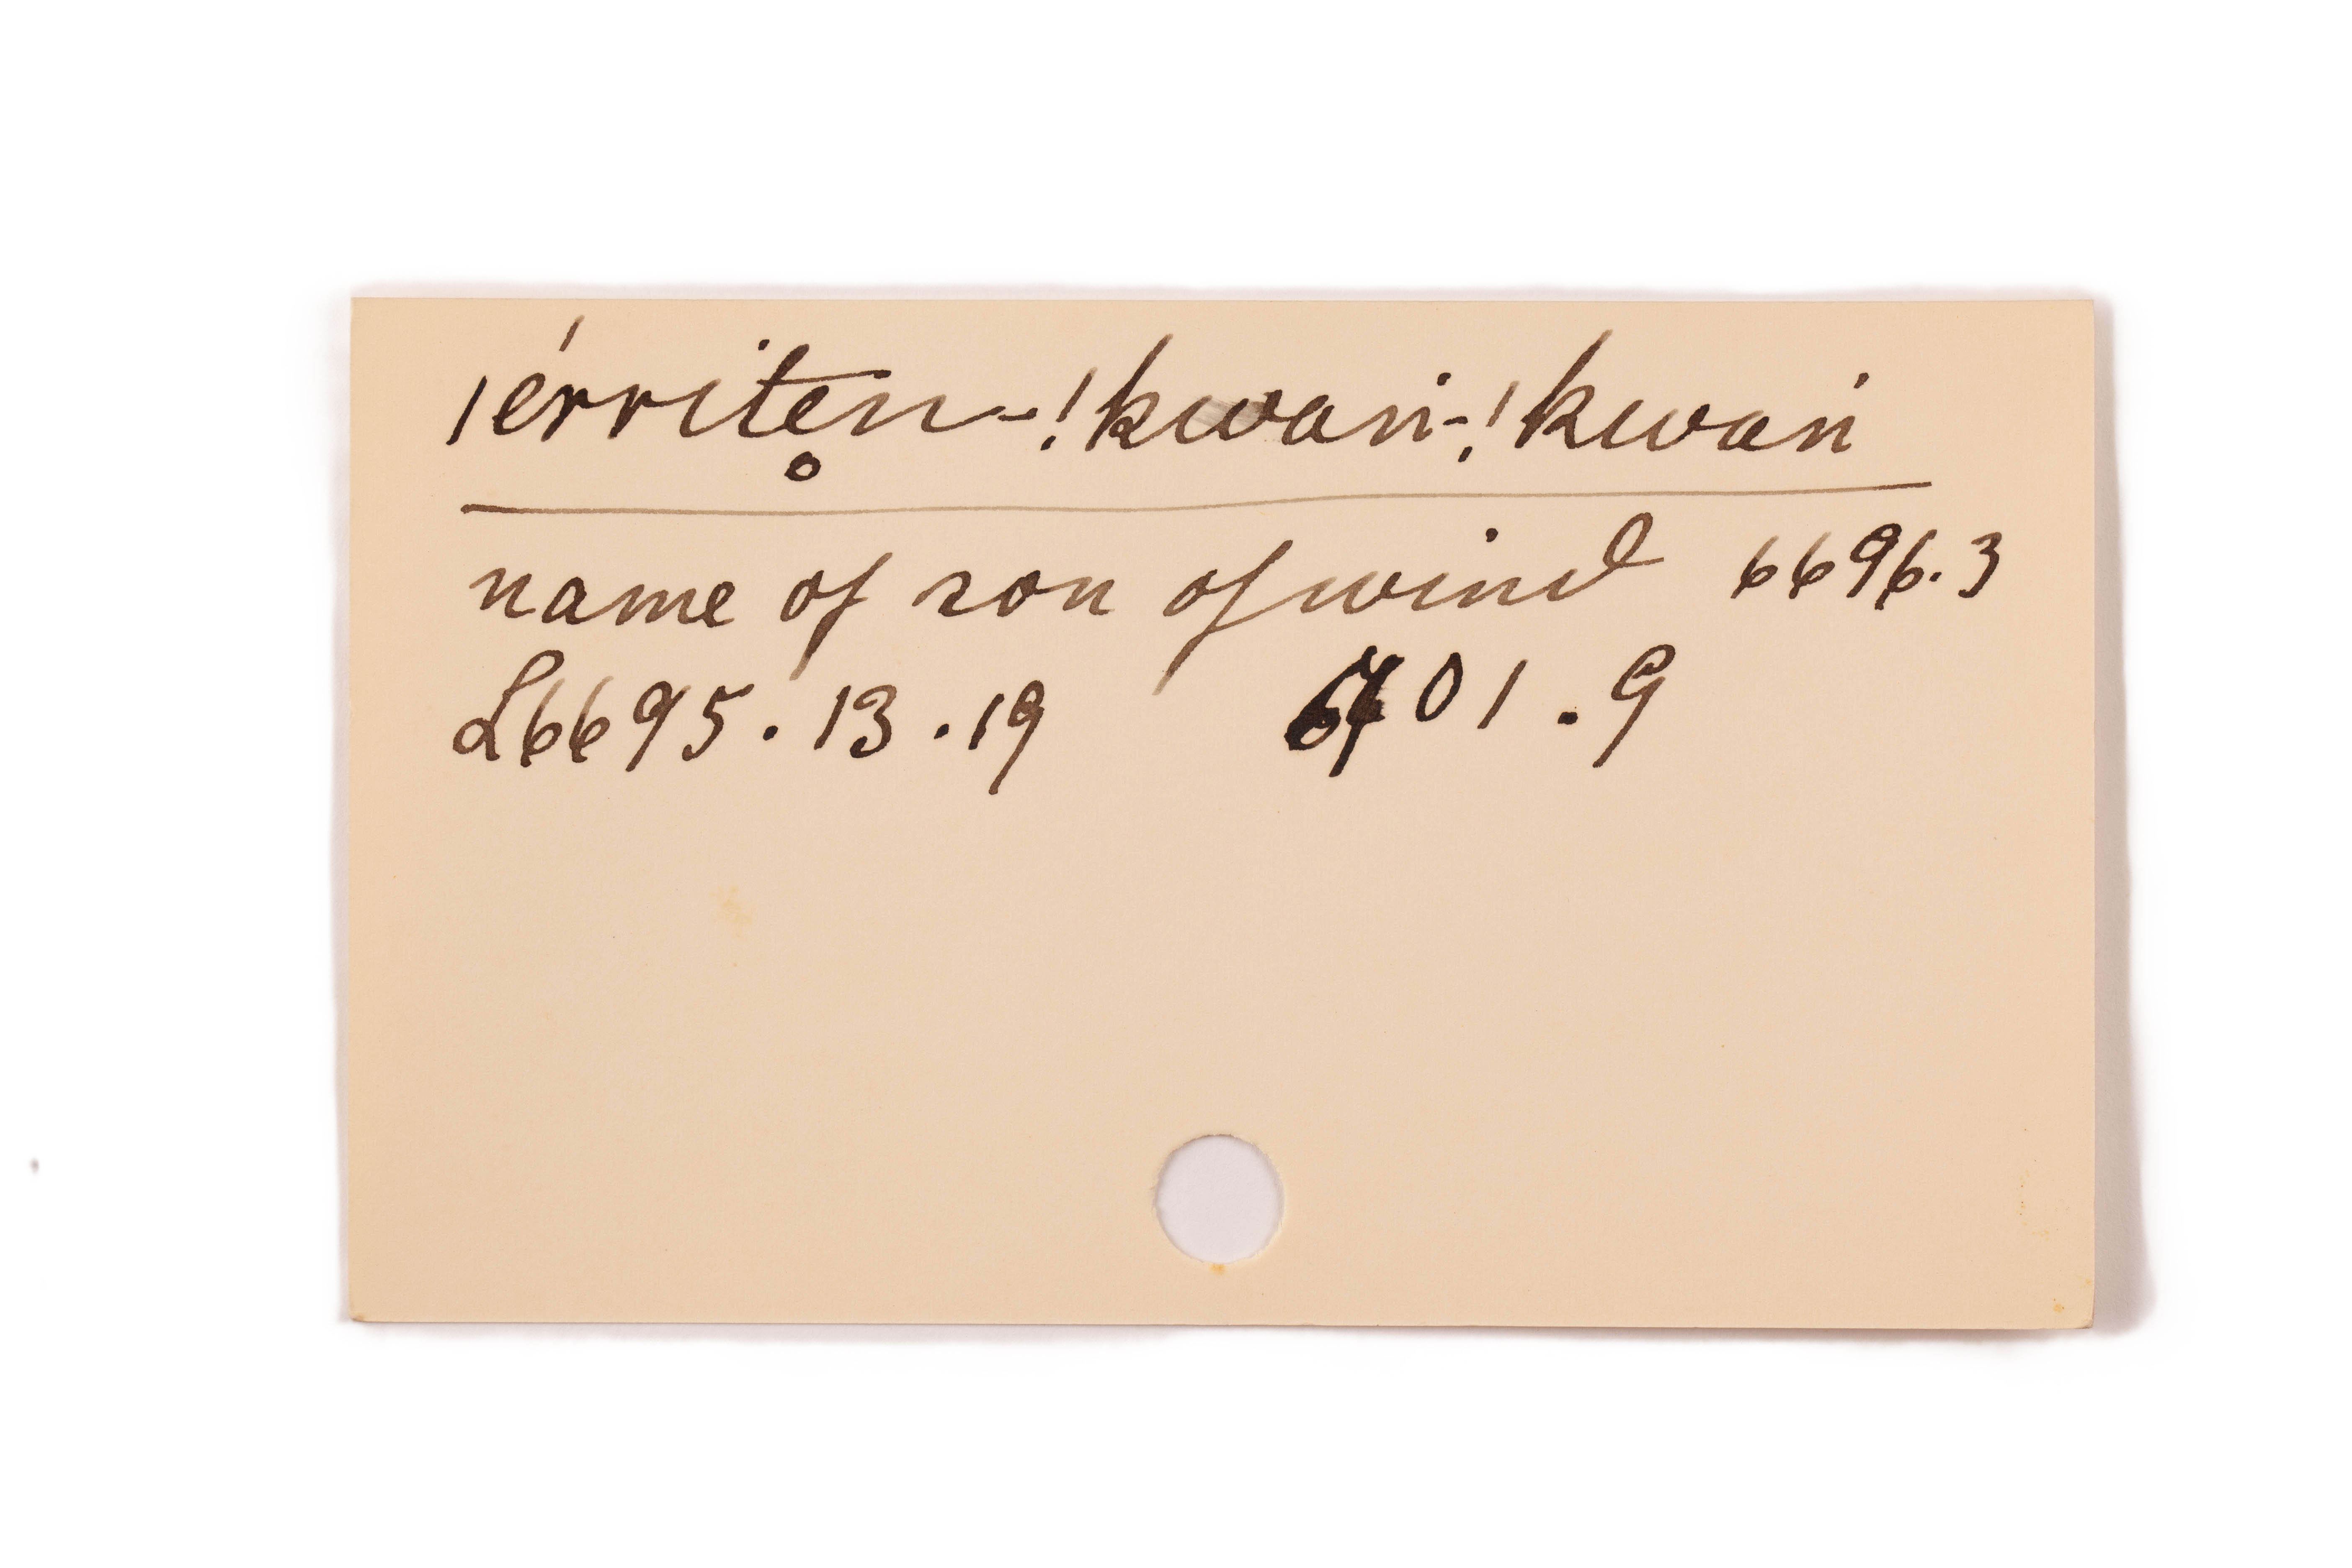 /érritẹn̥-!kwaṅ-!kwaṅ
name of son of wind 6696.3
L6695.13.19 6701.9